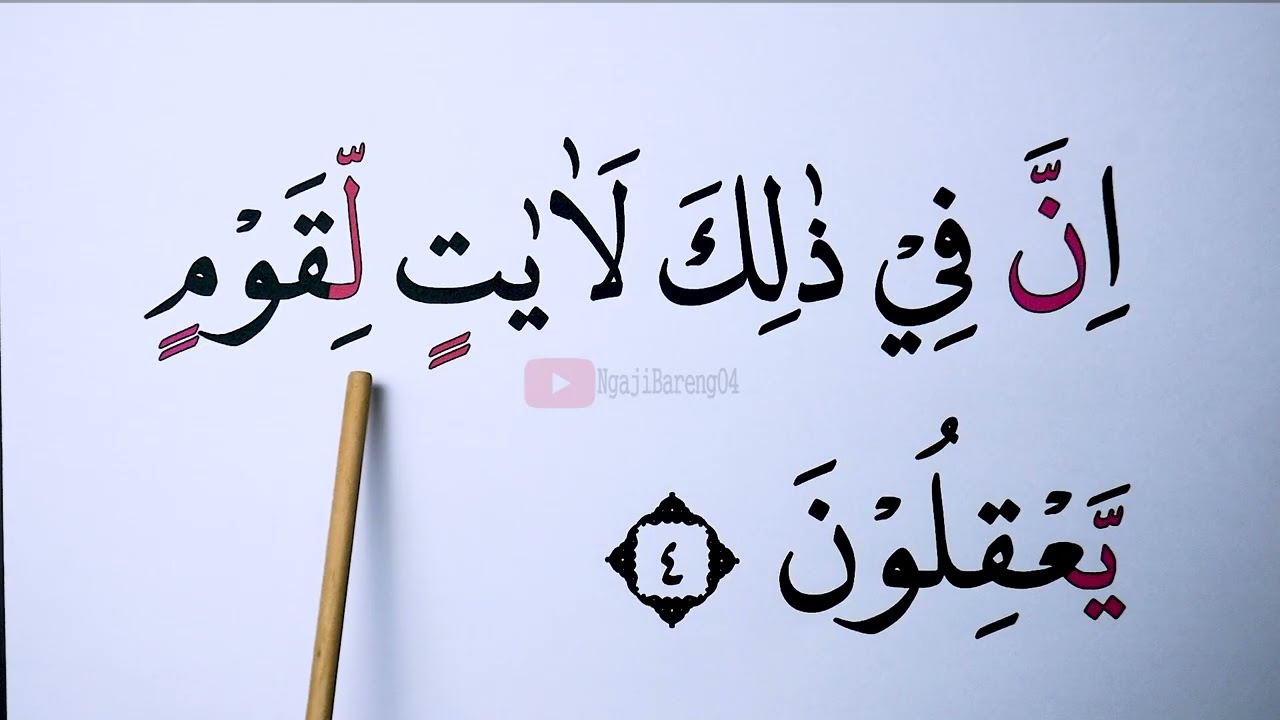 اِنَّ فِيْ ذٰلِكَ لَاٰيٰتٍ لِّقَوْمٍ
NgajiBareng04
يَّعْقِلُوْنَ ٤